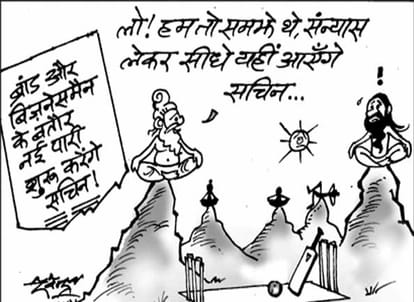 लो! हम तो समझे थे, संन्यास
लेकर सीधे यहीं आएँगे
सचिन...
ब्रांड और
बिज़नसमैन
के बतौर
नई पारी
शुरू करेंगे
सचिन!